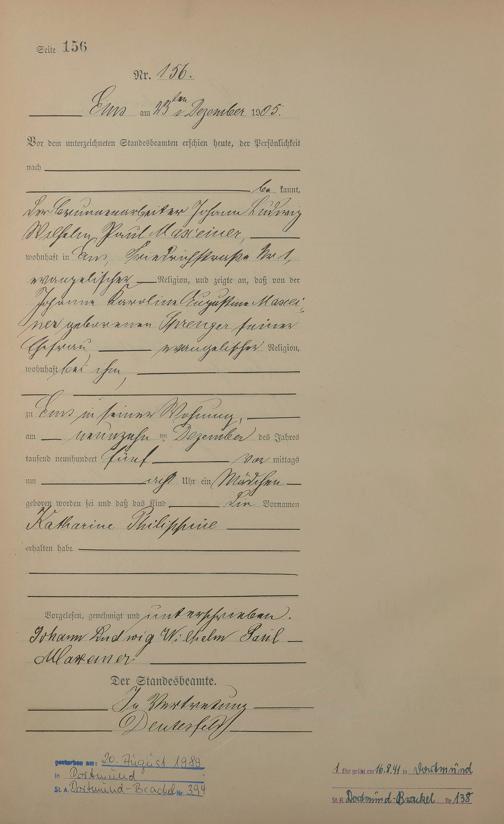 Seite 156
Nr. 156.
Ems am 23ten Dezember 1905.
Vor dem unterzeichneten Standesbeamten erschien heute, der Persönlichkeit
nach
be kannt,
der Brunnenarbeiter Johann Ludwig
Wilhelm Paul Maxeiner,
wohnhaft in Ems, Friedrichstraße Nr. 1,
evangelischer Religion, und zeigte an, daß von der
Johanne Karoline Augustine Maxei-
ner geborenen Sprenger seiner
Ehefrau evangelischer Religion,
wohnhaft bei ihm,
zu Ems in seiner Wohnung,
am neunzehn ten Dezember des Jahres
tausend neunhundert fünf Vor mittags
um acht Uhr ein Mädchen
geboren worden sei und daß das Kind die Vornamen
Katharine Philippine
erhalten habe
Vorgelesen, genehmigt und unterschrieben.
Johann Ludwig Wilhelm Paul
Maxeiner
Der Standesbeamte.
In Vertretung
gestorben am: 20. August 1989
in Dortmund
St. A. Dortmund-Brackel Nr. 394
1. Eheschl. am 16.8.41 in Dortmund
St. A. Dortmund-Brackel Nr. 138